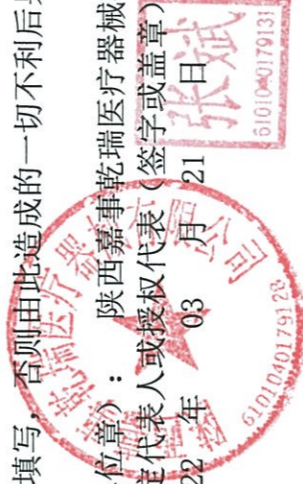 填写，否则由此造成的一切不利后
位章）： 陕西嘉事乾瑞医疗器械
定代表人或授权代表（签字或盖章）
22 年 03 月 21 日
乾瑞医疗器械有限公司
6101040179128
张斌
6101040179131